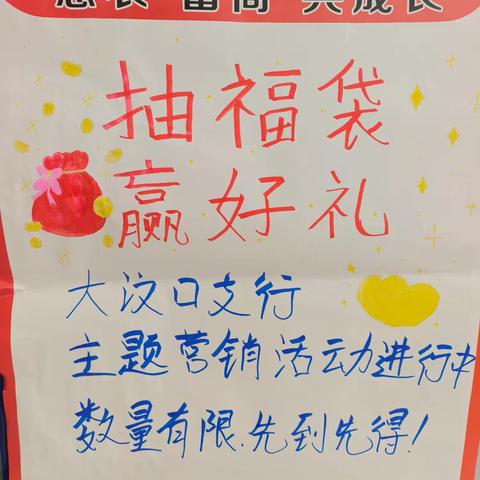 惠农 富商 共成长
抽福袋
赢好礼
大汶口支行
主题营销活动进行中
数量有限.先到先得!